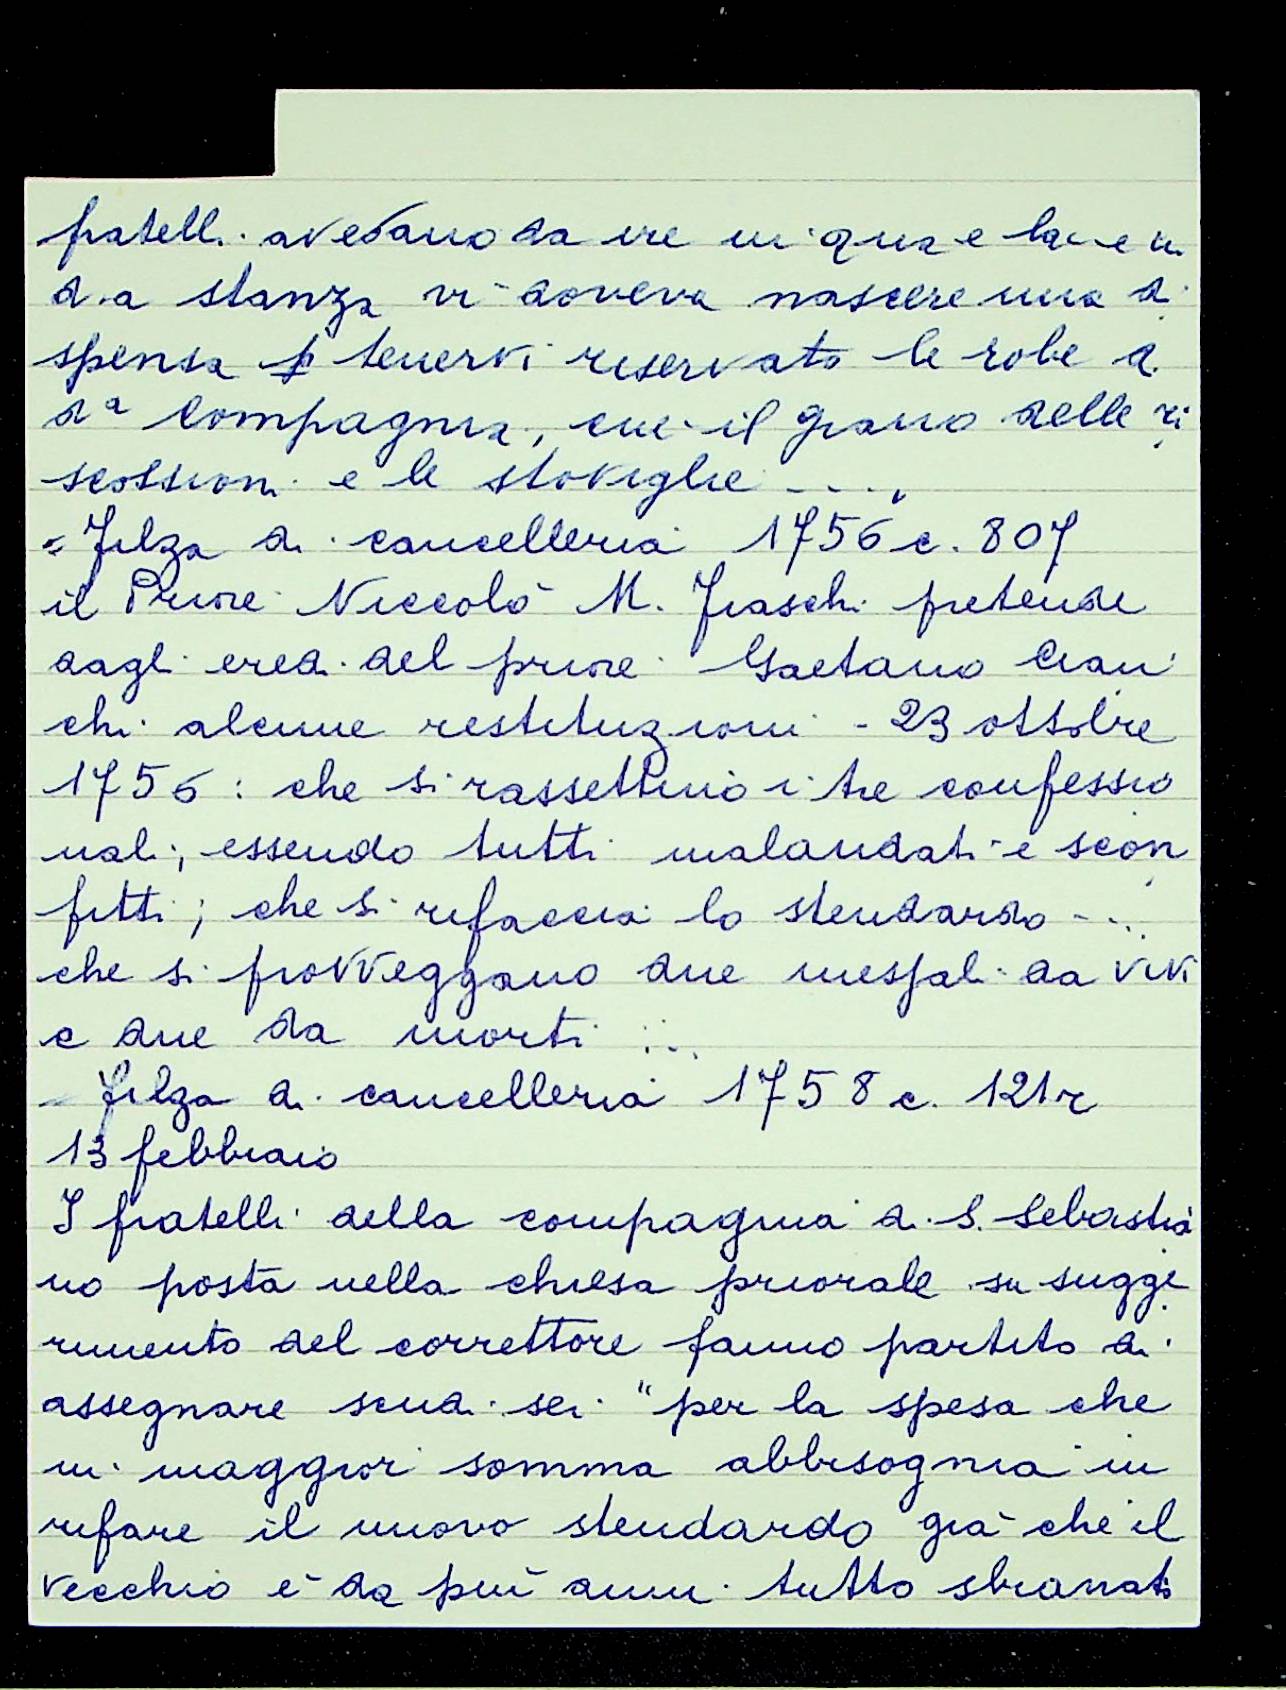 fratelli avevano da ire in qua e là e in
d.a stanza vi doveva nascere una di
spensa p tenervi riservato le robe di
d.a Compagnia, cuci il grano delle ri
scossioni e le stoviglie ....
= Filza di cancelleria 1756 c. 807
il Priore Niccolò M. Fraschi pretende
dagli eredi del priore Gaetano Cian
chi alcune restituzioni - 23 ottobre
1756: che si rassettino i tre confessio
nali, essendo tutti malandati e scon
fitti; che si rifaccia lo stendardo -...
che si provveggano due messali da vivi
e due da morti ....
- filza di cancelleria 1758 c. 121r
13 febbraio
I fratelli della compagnia di S. Sebastia
no posta nella chiesa priorale su sugge
rimento del correttore fanno partito di
assegnare scudi sei "per la spesa che
in maggior somma abbisognia in
rifare il nuovo stendardo già che il
vecchio è da più anni tutto sbranato